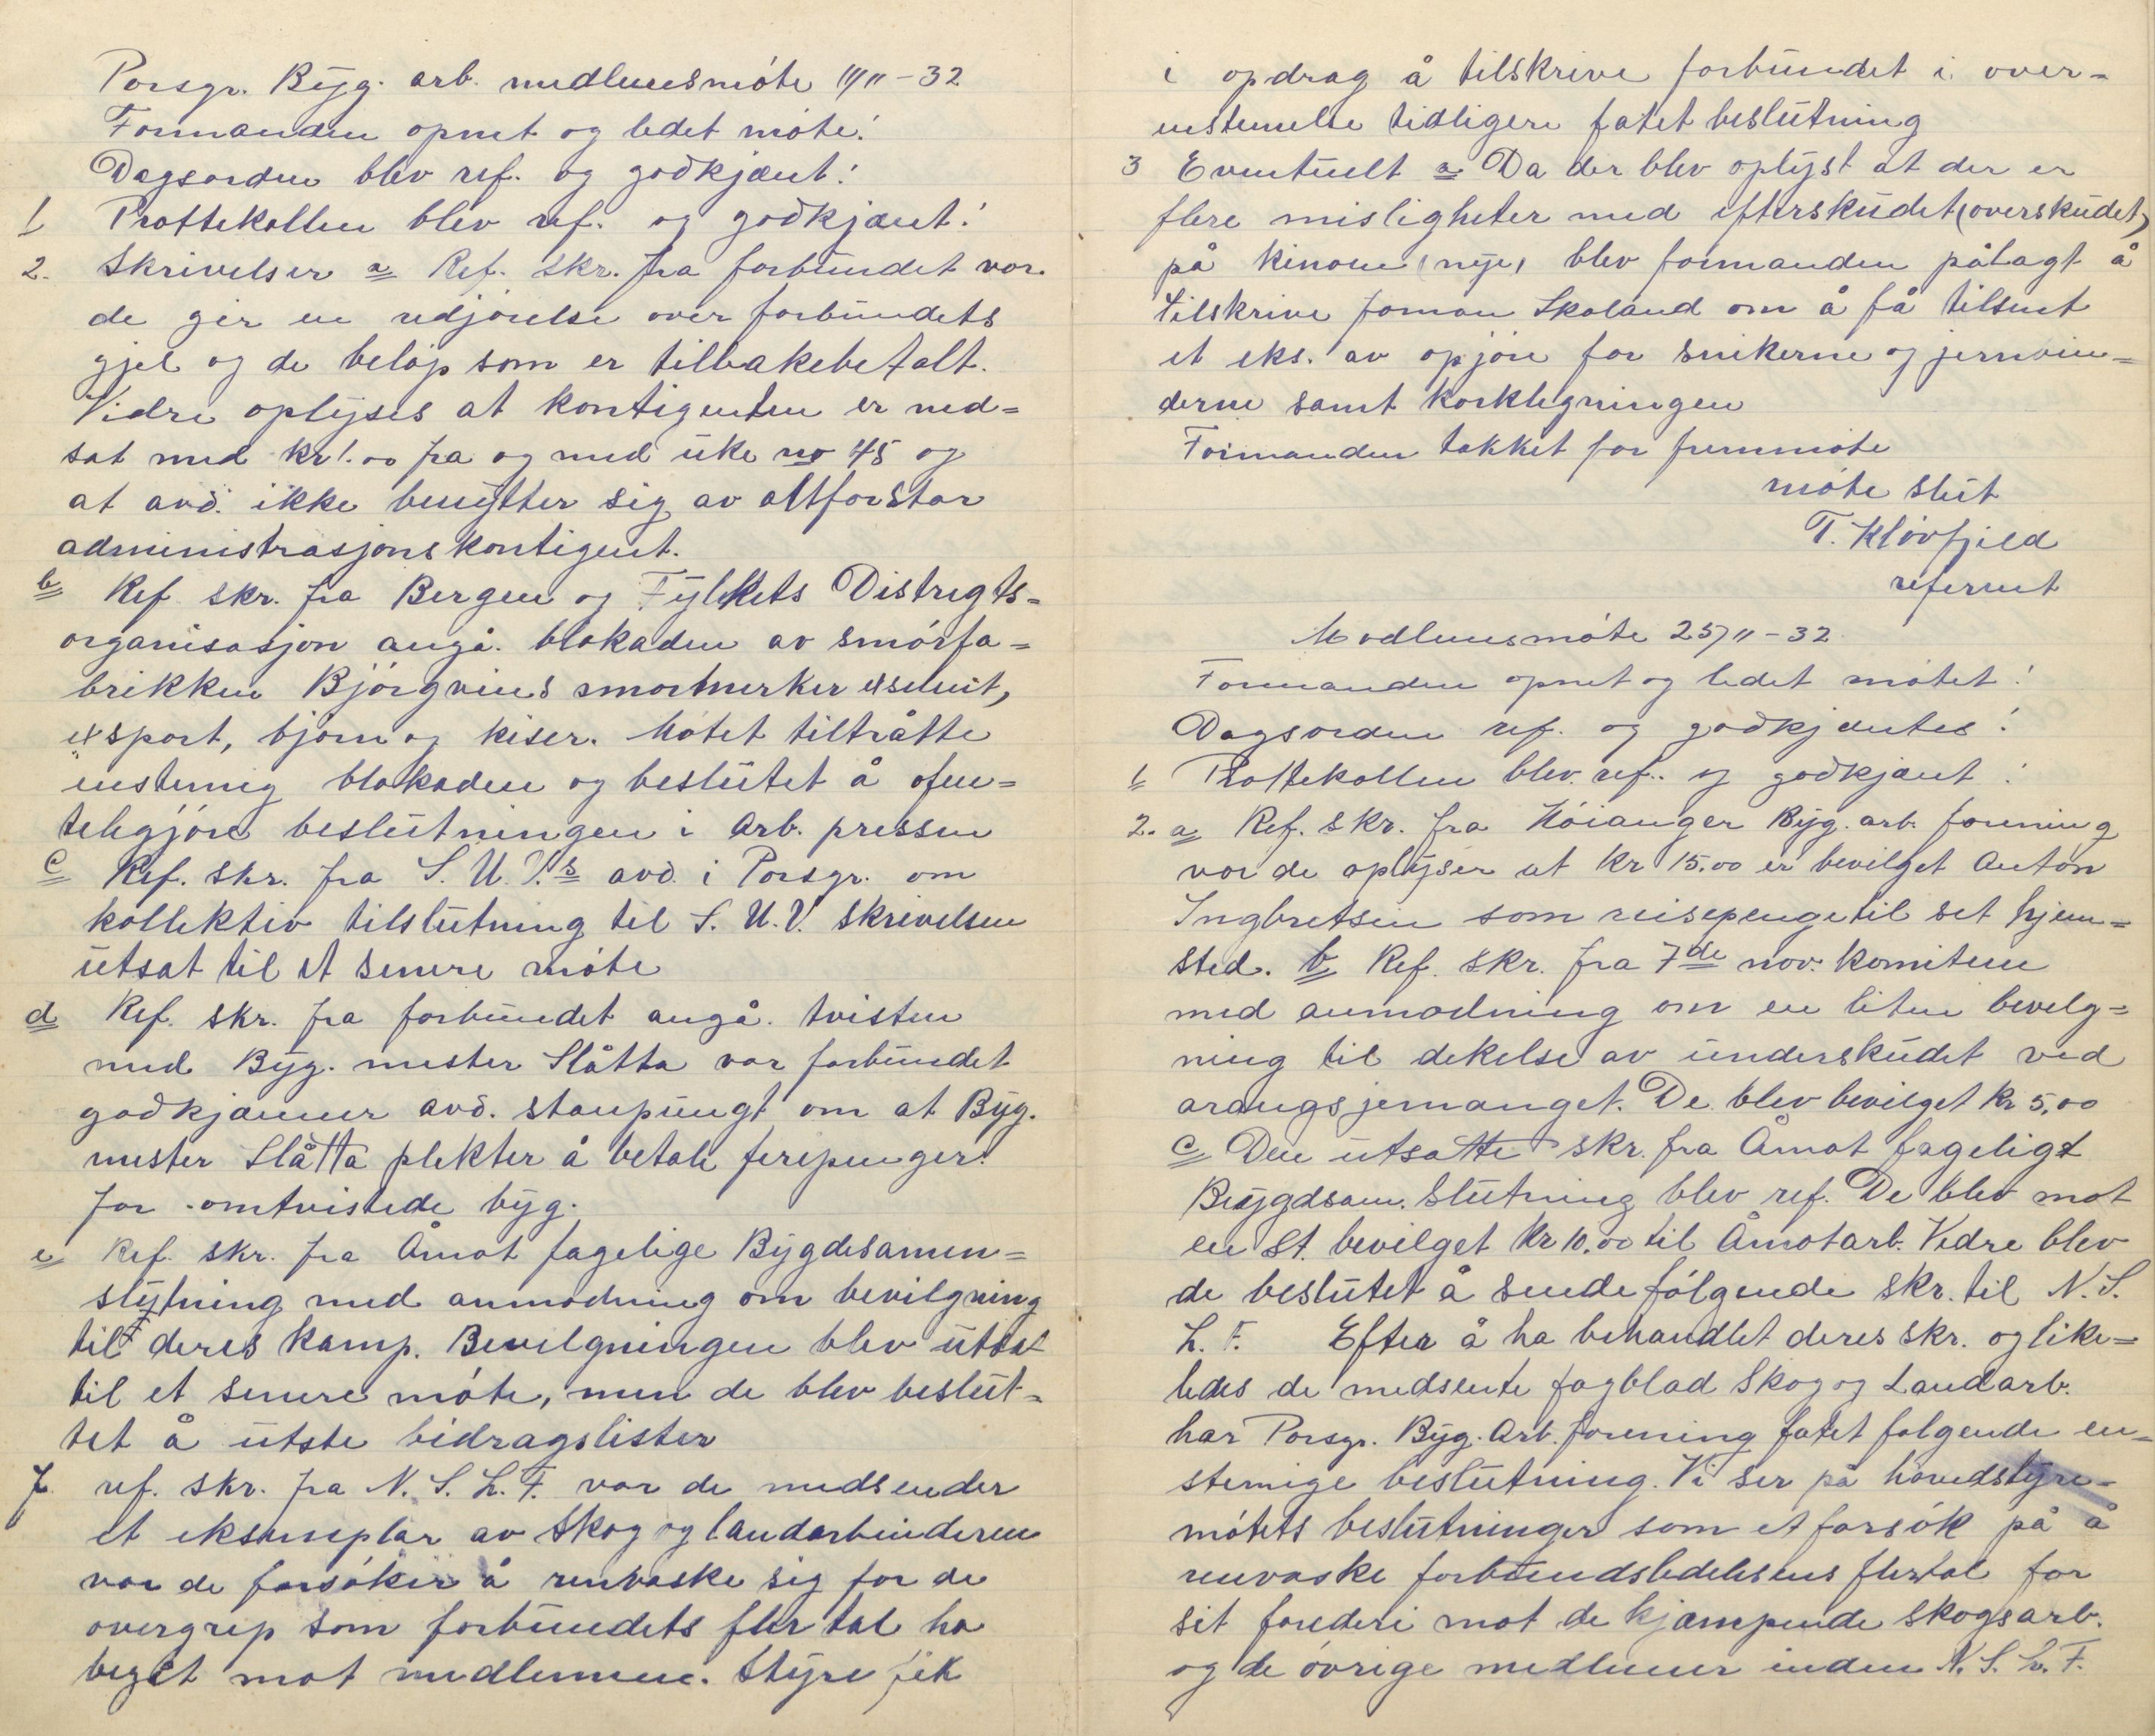 Porsgr. Byg. arb. medlemsmöte 11/11-32
Formanden opnet og ledet möte!
Dagsorden blev ref. og godkjænt!
1 Prottekollen blev ref. og godkjænt!
2. Skrivelser a Ref. skr. fra forbundet vor.
de gir en redjörelse over forbundets
gjel og de belöp som er tilbakebetalt.
Vidre oplyses at kontigenten er ned=
sat med kr 1.00 fra og med uke no 45 og
at avd. ikke benytter sig av altforstor
administrasjonskontigent.
b Ref skr. fra Bergen og Fylkets Distregts=
organisasjon angå. blokaden av smörfa=
brikken Björgvins smörmerker
exsport, björn og keiser. Mötet tiltråtte
enstemig blokaden og beslutet å ofen=
teligjöre beslutningen i arb. pressen
c Ref. skr. fra S. U. V.s avd. i Porsgr. om
kollektiv tilslutning til S. U. V. skrivelsen
utsat til et senere möte
d Ref. skr. fra forbundet angå. tvisten
med Byg. mester Slåtta vor forbundet
godkjænner avd. stanpungt om at Byg.
mester Slåtta plekter å betale feriepenger
for omtvistede byg.
e Ref. skr. fra Åmot fagelige Bygdesamen=
slutning med anmodning om bevilgning
til deres kamp. Bevilgningen blev utsat
til et senere möte, men de blev beslut=
tet å utste bidragslister
f. ref. skr. fra N. S. L. F. vor de medsender
et eksemplar av Skog og landarbeideren
vor de forsöker å renvaske sig for de
overgrep som forbundets flertal ha
beget mot medlemmene. Styre fik
i opdrag å tilskrive forbundet i over=
enstemelse tidligere fatet beslutning
3 Eventuelt a Da der blev oplyst at der er
flere misligheter med efterskudet (overskudet)
på kinoen (nye) blev formanden pålagt å
tilskrive forman Skoland om å få tilsent
et eks. av opjöre for snekerne og jernvin=
derne samt korklegningen
Formanden takket for fremmöte
möte slut
T. Klövfjeld
referent
Medlemsmöte 25/11-32
Formanden opnet og ledet mötet!
Dagsorden ref. og godkjæntes!
1 Prottekollen blev ref. og godkjænt!
2. a Ref. skr. fra Höianger Byg. arb. forening
vor de oplyser at kr 15.00 er bevilget Anton
Ingbretsen som reisepenge til set hjem=
sted. b Ref. skr. fra 7de nov. komiteen
med anmodning om en liten bevelg=
ning til dekelse av underskudet ved
arangsjemanget. De blev bevilget kr 5.00
c Den utsatte skr. fra Åmot fageligt
Bygdsam. slutning blev ref. De blev mot
en St. bevilget kr 10.00 til Åmotarb. Vidre blev
de beslutet å sende fölgende skr. til N. S.
L. F. Efter å ha behandlet deres skr. og like=
ledes de medsente fagblad Skog og Landarb.
har Porsgr. Byg. Arb. forening fatet folgende en=
stemige beslutning. Vi ser på hovedstyre=
mötets beslutninger som et forsök på å
renvaske forbundsledelsens flertal for
sit forederi mot de kjæmpende skogsarb.
og de övrige medlemer inden N. S. L. F.